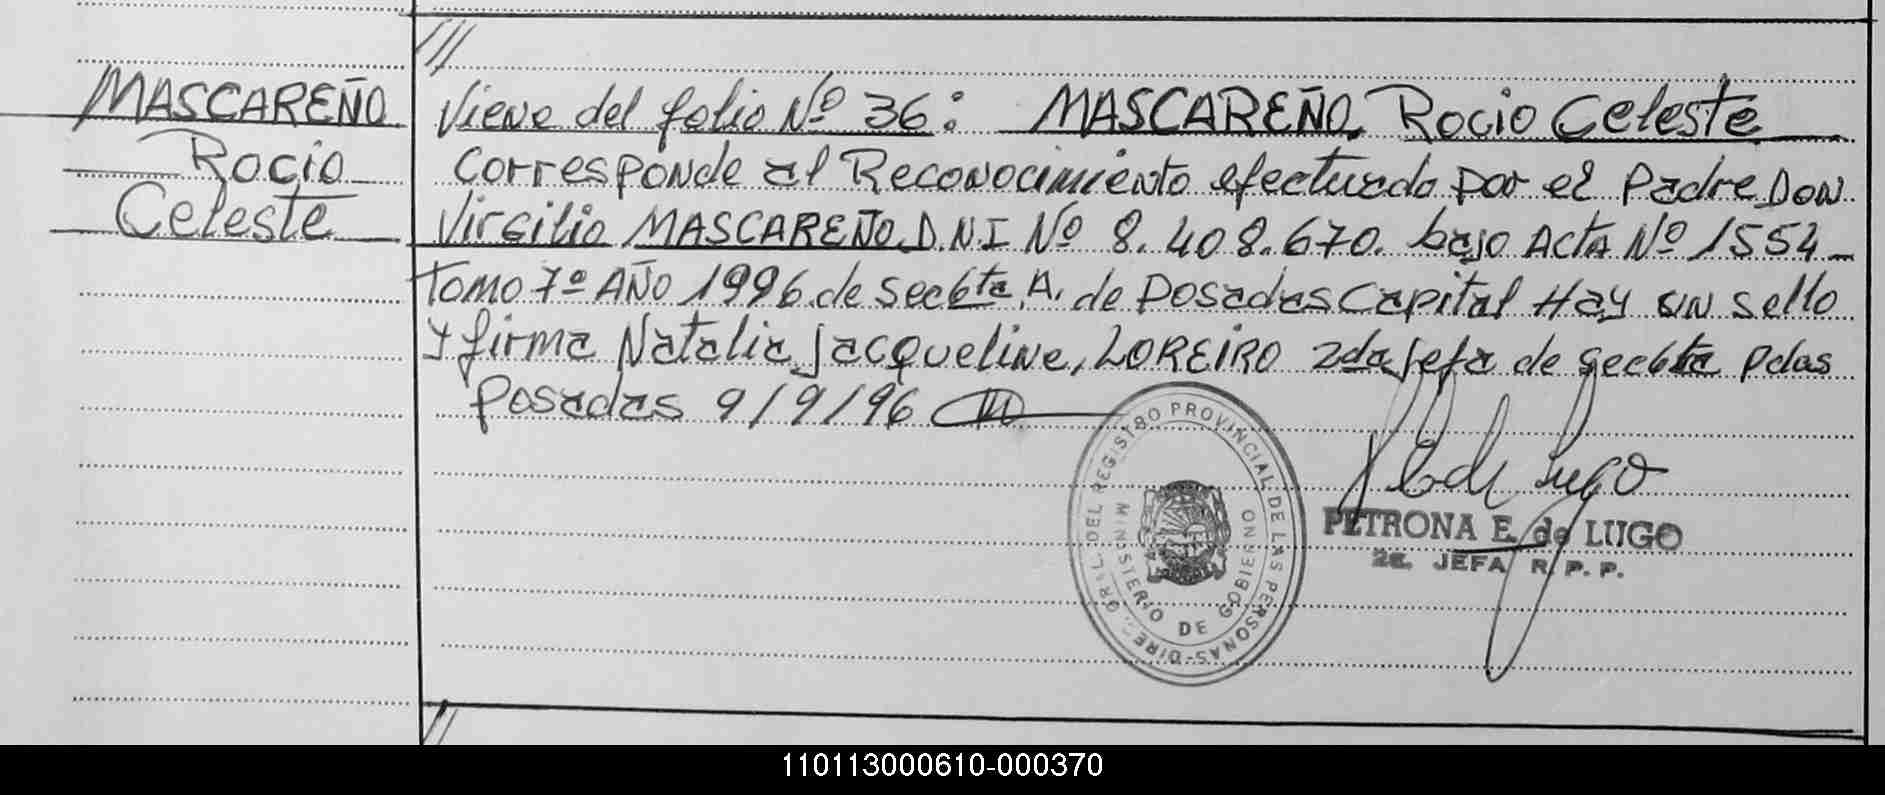 ///
MASCAREÑO
Rocio
Celeste
Viene del folio Nº 36: MASCAREÑO, Rocio Celeste
corresponde al Reconocimiento efectuado por el Padre DON
Virgilio MASCAREÑO D.N.I Nº 8.408.670. bajo Acta Nº 1554
Tomo 7º AÑO 1996 de Secbta A. de Posadas Capital Hay un sello
y firma Natalia Jacqueline, LOREIRO 2da Jefa de Secbta Pdas
Posadas 9/9/96
DIREC GRAL. DEL REGISTRO PROVINCIAL DE LAS PERSONAS-
MINISTERIO DE GOBIERNO
PETRONA E. de LUGO
2a. JEFA R. P. P.
//
110113000610-000370